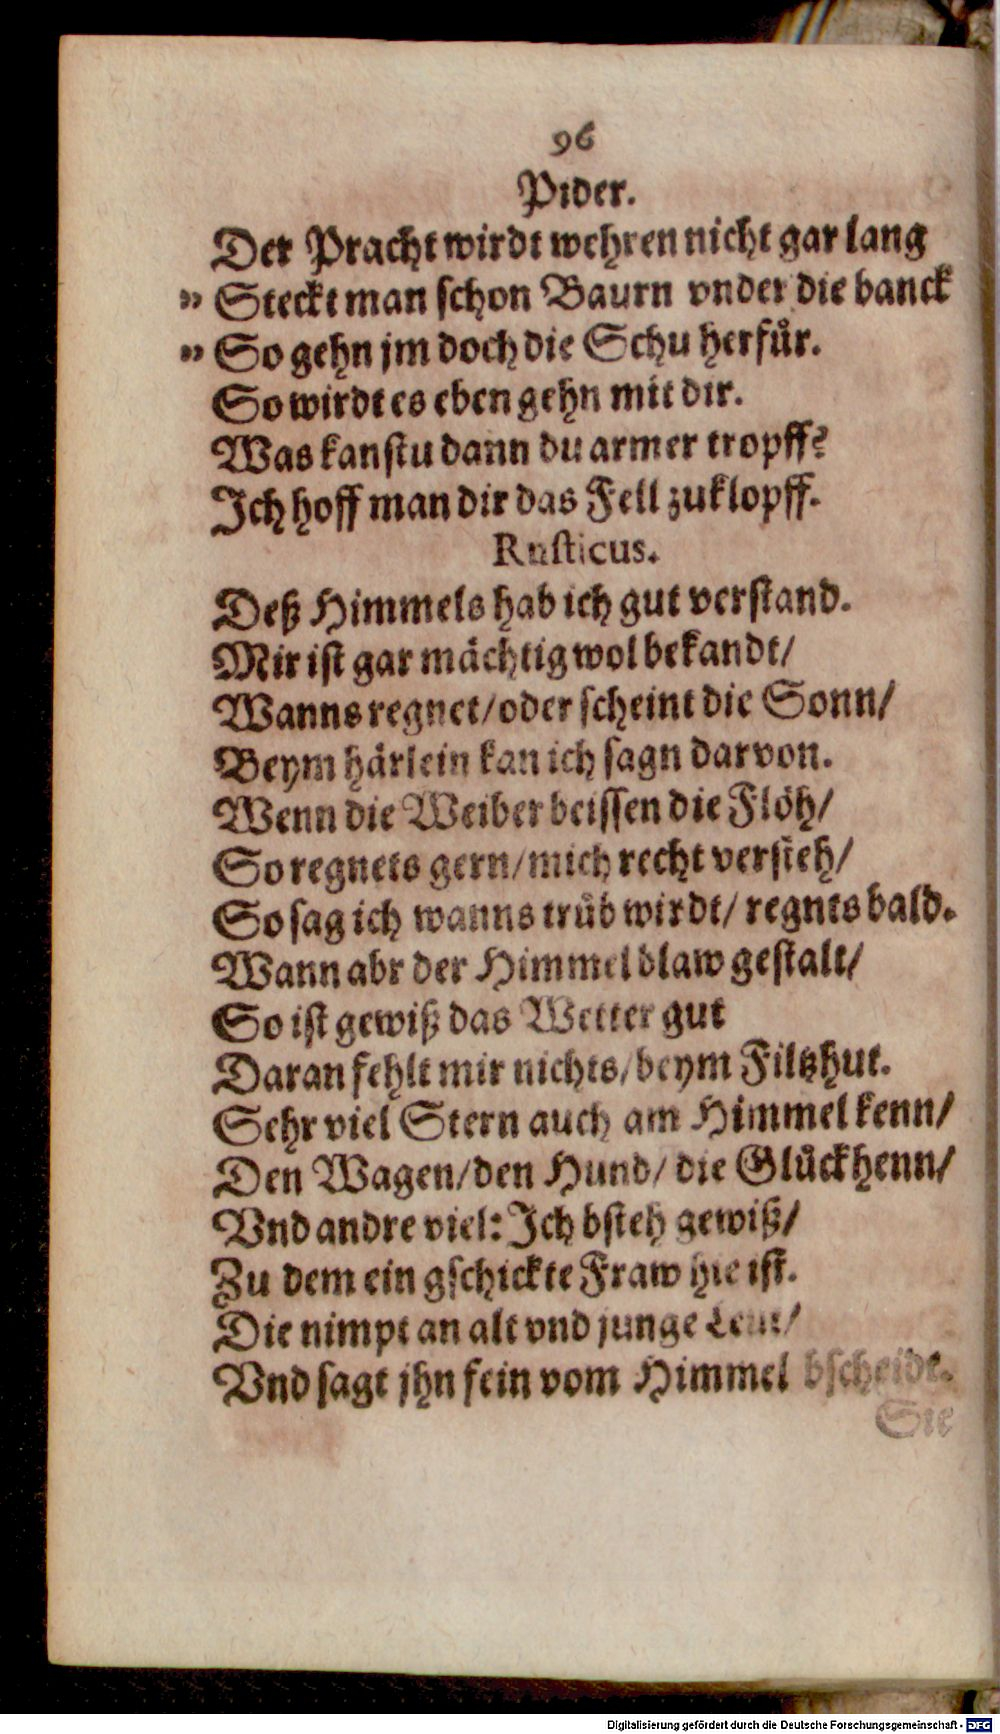 96
Pider.
Der Pracht wirdt wehren nicht gar lang
" Steckt man schon Baurn vnder die banck
" So gehn jm doch die Schu herfuͤr.
So wirdt es eben gehn mit dir.
Was kanstu dann du armer tropff?
Ich hoff man dir das Fell zuklopff.
Rusticus.
Deß Himmels hab ich gut verstand.
Mir ist gar mächtig wol bekandt/
Wanns regnet/ oder scheint die Sonn/
Beym härlein kan ich sagn darvon.
Wenn die Weiber beissen die Flöh/
So regnets gern/ mich recht versteh/
So sag ich wanns truͤb wirdt/ regnts bald.
Wann abr der Himmel blaw gestalt/
So ist gewiß das Wetter gut
Daran fehlt mir nichts/ beym Filtzhut.
Sehr viel Stern auch am Himmel kenn/
Den Wagen/ den Hund/ die Gluͤckhenn/
Vnd andre viel: Ich bsteh gewiß/
Zu dem ein gschickte Fraw hie ist.
Die nimpt an alt vnd junge Leut/
Vnd sagt jhn fein vom Himmel bscheidt.
Sie
Digitalisierung gefördert durch die Deutsche Forschungsgemeinschaft - DFG